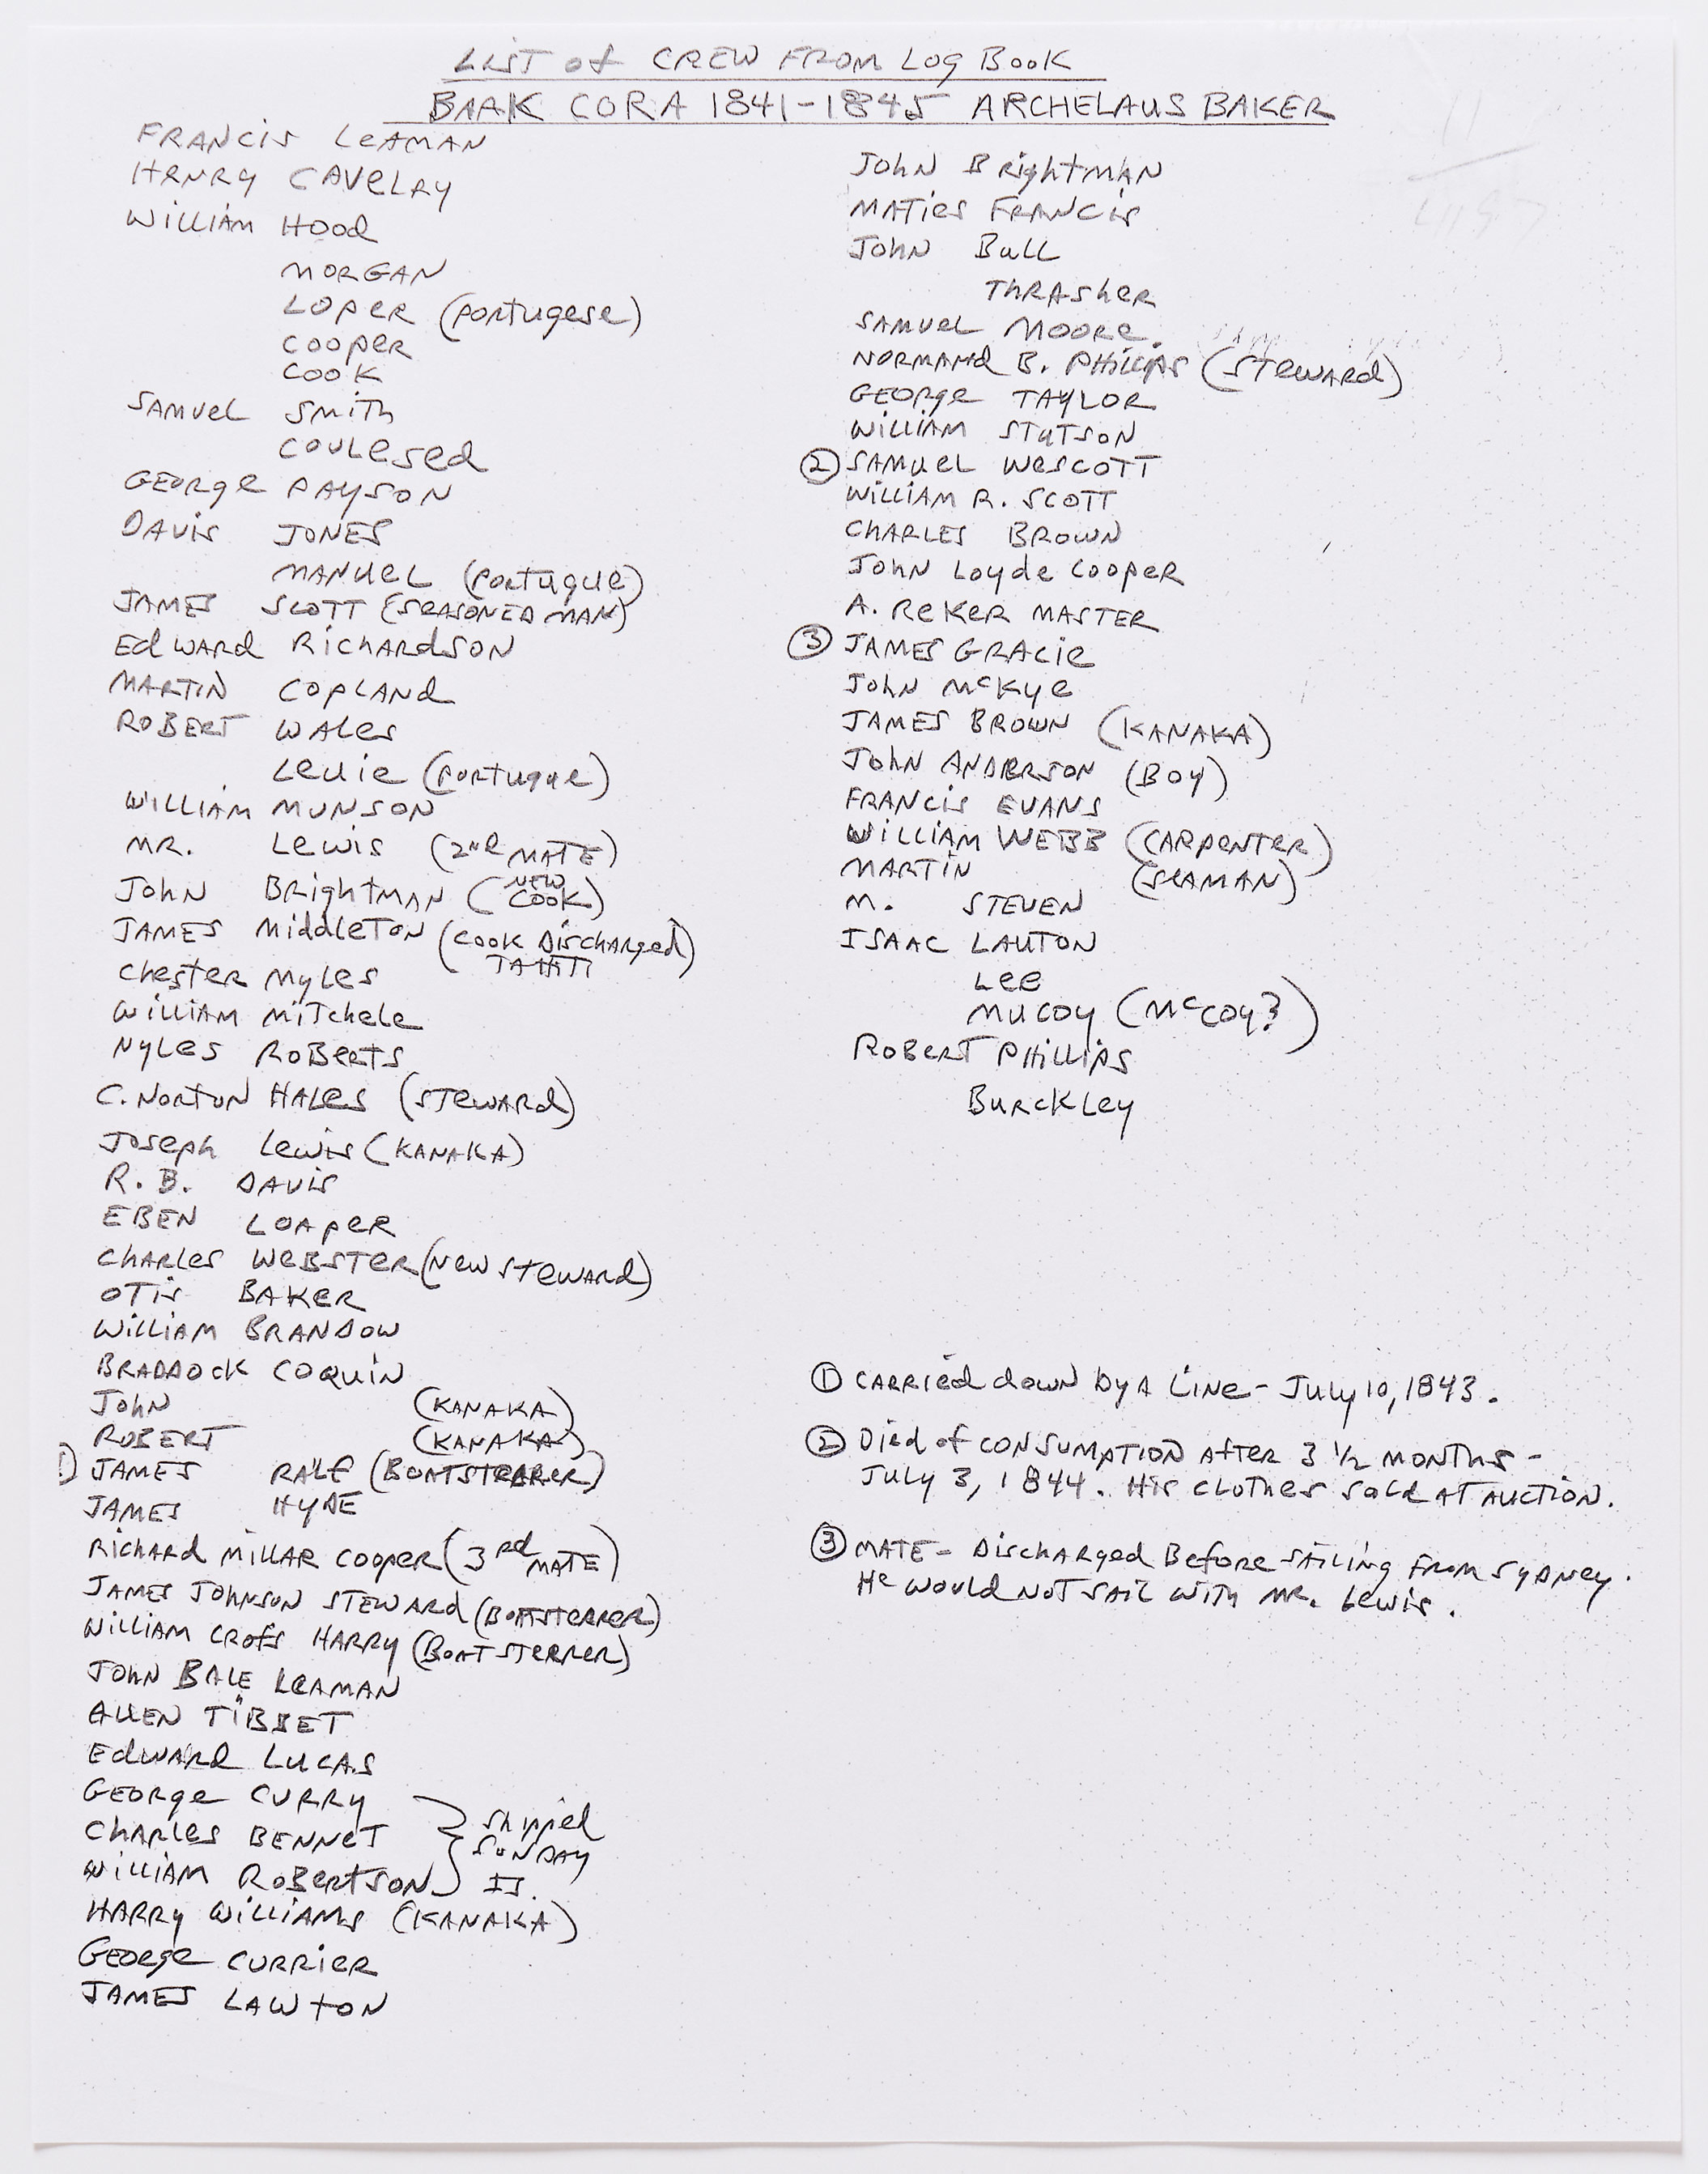 LIST of CREW FROM LOG BOOK
BARK CORA 1841-1845 ARCHELAUS BAKER
FRANCIS LEAMAN
HENRY CAVELRY
WILLIAM HOOD
MORGAN
LOPER (PORTUGESE)
COOPER
COOK
SAMUEL SMITH
COULESED
GEORGE PAYSON
DAVIS JONES
MANUEL (PORTUGUE)
JAMES SCOTT (SEASONED MAN)
EDWARD RICHARDSON
MARTIN COPLAND
ROBERT WALES
LEUIE (PORTUGUE)
WILLIAM MUNSON
MR. LEWIS (2nd MATE)
JOHN BRIGHTMAN (NEW COOK)
JAMES MIDDLETON (COOK DISCHARGED TAHITI)
CHESTER MYLES
WILLIAM MITCHELE
NYLES ROBERTS
C. NORTON HALES (STEWARD)
JOSEPH LEWIS (KANAKA)
R. B. DAVIS
EBEN LOAPER
CHARLES WEBSTER (NEW STEWARD)
OTIS BAKER
WILLIAM BRANDOW
BRADDOCK COQUIN
JOHN (KANAKA)
ROBERT (KANAKA)
① JAMES RALE (BOATSTEARER)
JAMES HYDE
RICHARD MILLAR COOPER (3rd MATE)
JAMES JOHNSON STEWARD (BOATSTERRER)
WILLIAM CROFS HARRY (BOATSTERRER)
JOHN BALE LEAMAN
ALLEN TIBBET
EDWARD LUCAS
GEORGE CURRY
CHARLES BENNET } SHIPPED SUNDAY
WILLIAM ROBERTSON
HARRY WILLIAMS (KANAKA)
GEORGE CURRIER
JAMES LAWTON
JOHN BRIGHTMAN
MATIES FRANCIS
JOHN BULL
THRASHER
SAMUEL MOORE.
NORMAND B. PHILLIPS (STEWARD)
GEORGE TAYLOR
WILLIAM STUTSON
② SAMUEL WESCOTT
WILLIAM R. SCOTT
CHARLES BROWN
JOHN LOYDE COOPER
A. REKER MASTER
③ JAMES GRACIE
JOHN McKYE
JAMES BROWN (KANAKA)
JOHN ANDERSON (BOY)
FRANCIS EVANS
WILLIAM WEBB (CARPENTER)
MARTIN (SEAMAN)
M. STEVEN
ISAAC LAUTON
LEE
MUCOY (McCOY?)
ROBERT PHILLIPS
BURCKLEY
① CARRIED DOWN BY A LINE - JULY 10, 1843.
② DIED OF CONSUMPTION AFTER 3 1/2 MONTHS -
JULY 3, 1844. HIS CLOTHES SOLD AT AUCTION.
③ MATE - DISCHARGED BEFORE SAILING FROM SYDNEY.
HE WOULD NOT SAIL WITH MR. LEWIS.